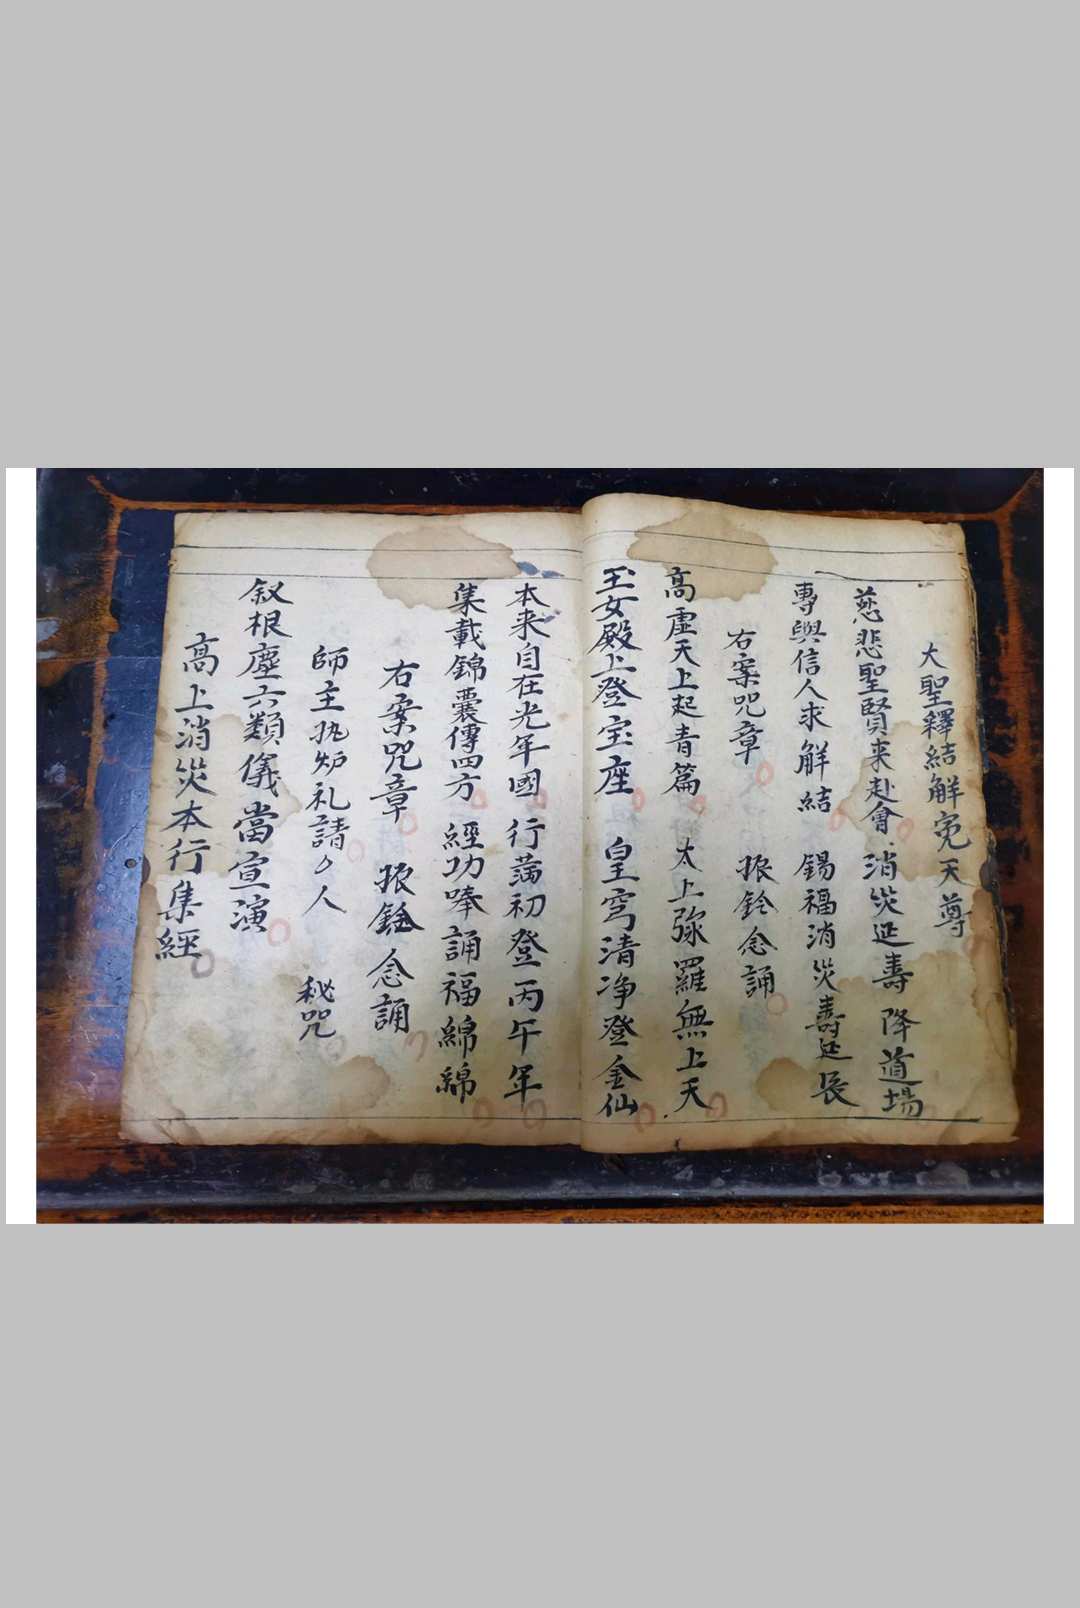 大聖釋結解冤天尊
慈悲聖賢来赴會 消災延壽降道場
專與信人求解結 錫福消災壽延長
右案咒章 振鈴念誦
高虛天上起青篇 太上弥羅無上天
玉女殿上登宝座 皇穹清净登金仙
本来自在光年國 行蒲初登丙午年
集載錦囊傳四方 經功奉誦福綿綿
右案咒章 振鈴念誦
師主执炉礼請 人 秘咒
叙根塵六類儀當宣演
高上消災本行集經